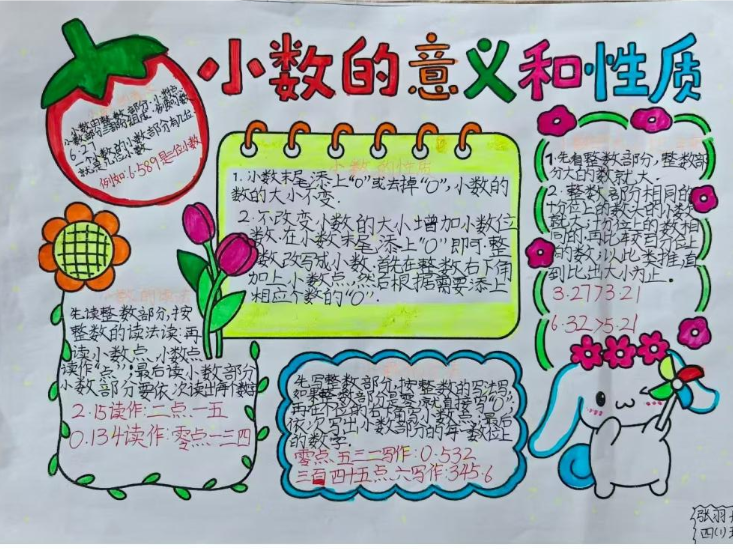 小数的意义和性质
小数由整数部分、小数点、
小数部分三部分组成。
6.27
一个数的小数部分有几位
就是几位小数
例如:6.589是三位小数
小数的性质
1.小数末尾添上“0”或去掉“0”,小数的
数的大小不变.
2.不改变小数的大小增加小数位
数.在小数末尾添上“0”即可.整
数改写成小数,首先在整数右下角
加上小数点,然后根据需要添上
相应个数的“0”.
1.先看整数部分,整数部
分大的数就大
2.整数部分相同的
十分位上的数大的小数大
部分十分位上的数相
同的,再比较百分位上
的数,以此类推,直
到比出大小为止.
3.27>3.21
6.32>5.21
先读整数部分,按
整数的读法读,再
读小数点,小数点
读作“点”,最后读小数部分
小数部分要依次读出每个数字
2.15读作:二点一五
0.134读作:零点一三四
先写整数部分,按整数的写法写
如果整数部分是零就直接写“0”,
再在个位的右下角写小数点,最后
依次写出小数部分的每一数位上
的数字.
零点五三二写作:0.532
三百四十五点六写作:345.6
张羽
四(1)